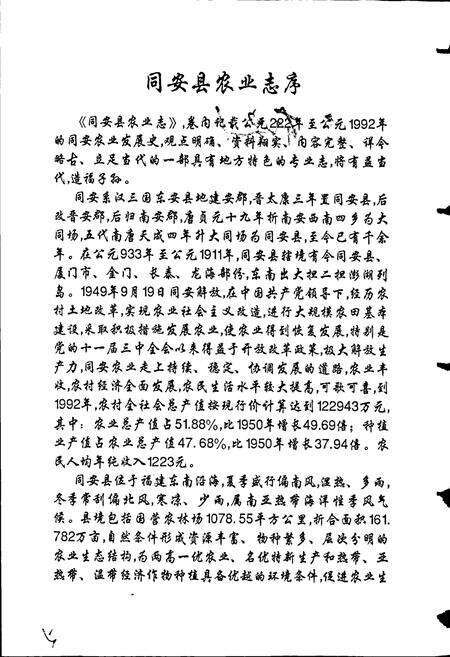 同安县农业志序
《同安县农业志》,卷内记载公元222年至公元1992年
的同安农业发展史,观点明确、资料翔实、内容完整、详今
略古、立足当代的一部具有地方特色的专业志,将有益当
代,造福子孙。
同安系汉三国东安县地建安郡,晋太康三年置同安县,后
改晋安郡,后归南安郡,唐贞元十九年析南安西南四乡为大
同场,五代南唐天成四年升大同场为同安县,至今已有千余
年。在公元933年至公元1911年,同安县辖境有今同安县、
厦门市、金门、长泰、龙海部份,东南出大担二担澎湖列
岛。1949年9月19日同安解放,在中国共产党领导下,经历农
村土地改革,实现农业社会主义改造,进行大规模农田基本
建设,采取积极措施发展农业,使农业得到恢复发展,特别是
党的十一届三中全会以来得益于开放改革政策,极大解放生
产力,同安农业走上持续、稳定、协调发展的道路,农业丰
收,农村经济全面发展,农民生活水平较大提高,可歌可喜,到
1992年,农村全社会总产值按现行价计算达到122943万元,
其中:农业总产值占51.88%,比1950年增长49.69倍;种植
业产值占农业总产值47.68%,比1950年增长37.94倍。农
民人均年纯收入1223元。
同安县位于福建东南沿海,夏季盛行偏南风,湿热、多雨,
冬季常刮偏北风,寒凉、少雨,属南亚热带海洋性季风气
候。县境包括国营农林场1078.55平方公里,折合面积161.
782万亩,自然条件形成资源丰富、物种繁多、层次分明的
农业生态结构,为两高一优农业、名优特新生产和热带、亚
热带、温带经济作物种植具备优越的环境条件,促进农业生